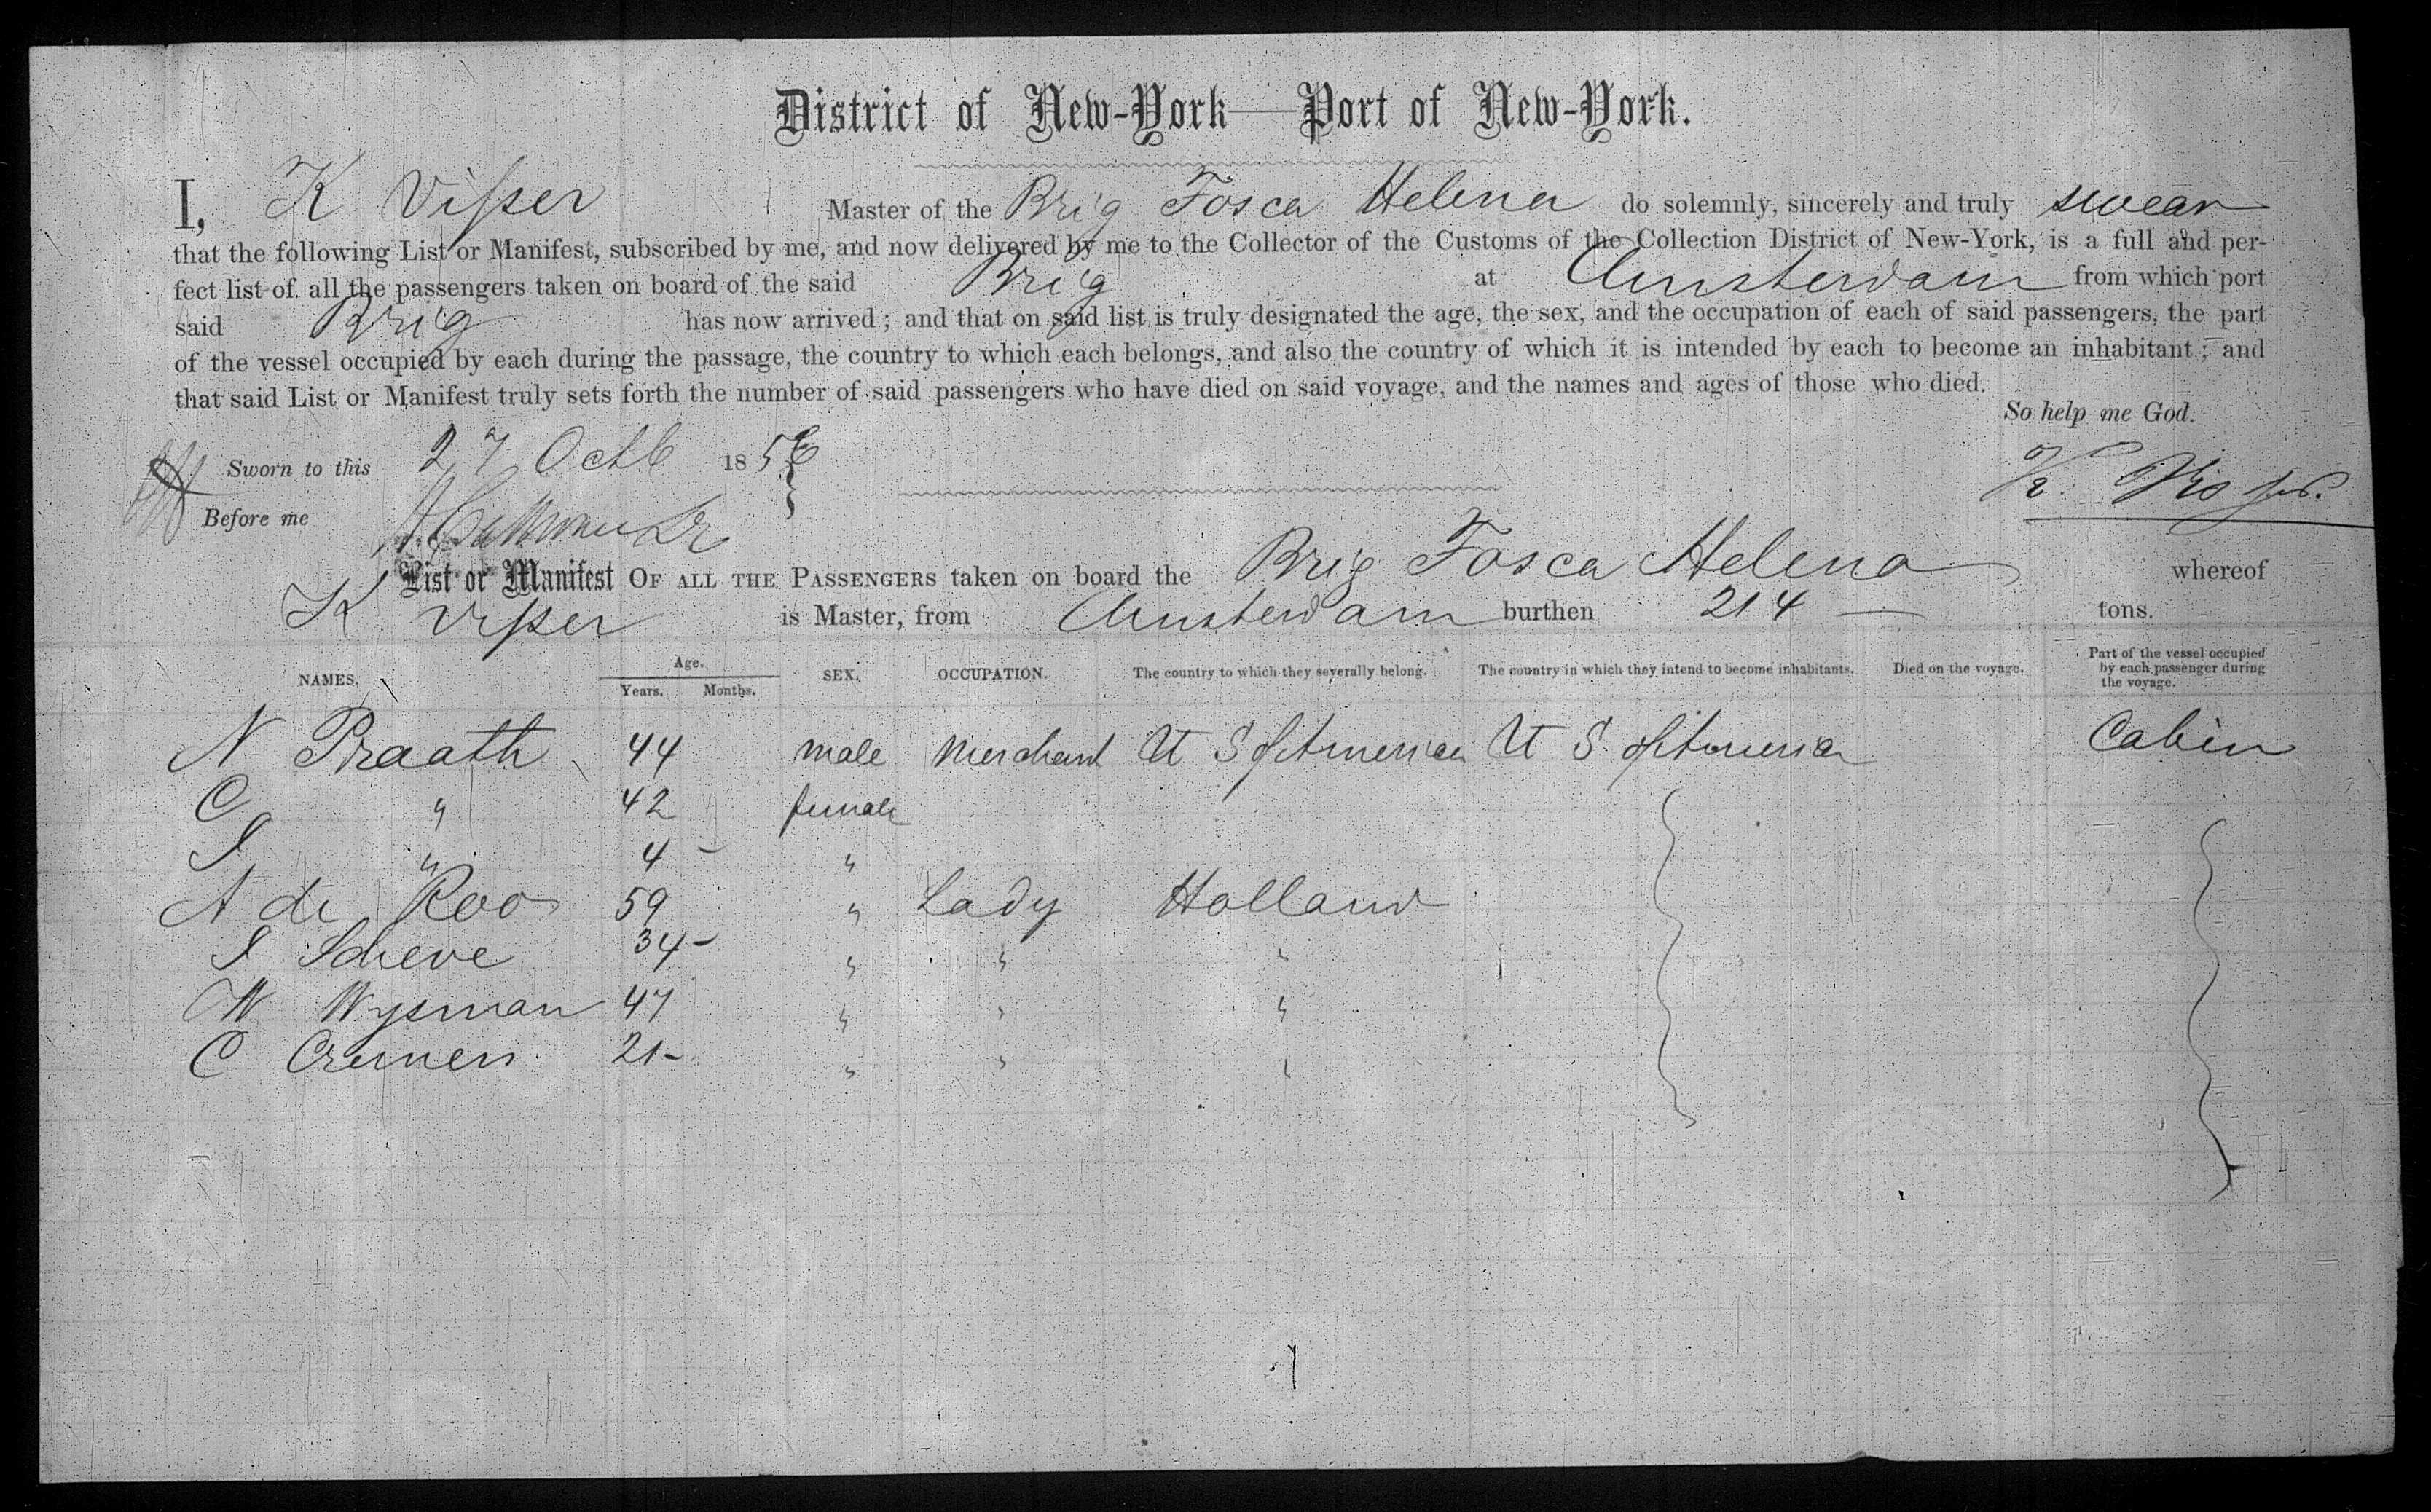 District of New-York—Port of New-York.
I, K Visser Master of the Brig Fosca Helena do solemnly, sincerely and truly swear
that the following List or Manifest, subscribed by me, and now delivered by me to the Collector of the Customs of the Collection District of New-York, is a full and per-
fect list of all the passengers taken on board of the said Brig at Amsterdam from which port
said Brig has now arrived; and that on said list is truly designated the age, the sex, and the occupation of each of said passengers, the part
of the vessel occupied by each during the passage, the country to which each belongs, and also the country of which it is intended by each to become an inhabitant; and
that said List or Manifest truly sets forth the number of said passengers who have died on said voyage, and the names and ages of those who died.
So help me God.
Sworn to this 27 Octb 1856
K. Visser.
Before me
List or Manifest OF ALL THE PASSENGERS taken on board the Brig Fosca Helena whereof
K Visser is Master, from Amsterdam burthen 214 — tons.
NAMES. Age. Years. Months. SEX. OCCUPATION. The country to which they severally belong. The country in which they intend to become inhabitants. Died on the voyage. Part of the vessel occupied by each passenger during the voyage.
N Praath 44 male Merchant U S of America U S. of America Cabin
C " 42 female
S " 4 - "
A de Roo 59 " Lady Holland
S Scheve 34 - " " "
W Wysman 47 " " "
C Cremers 21 - " " "